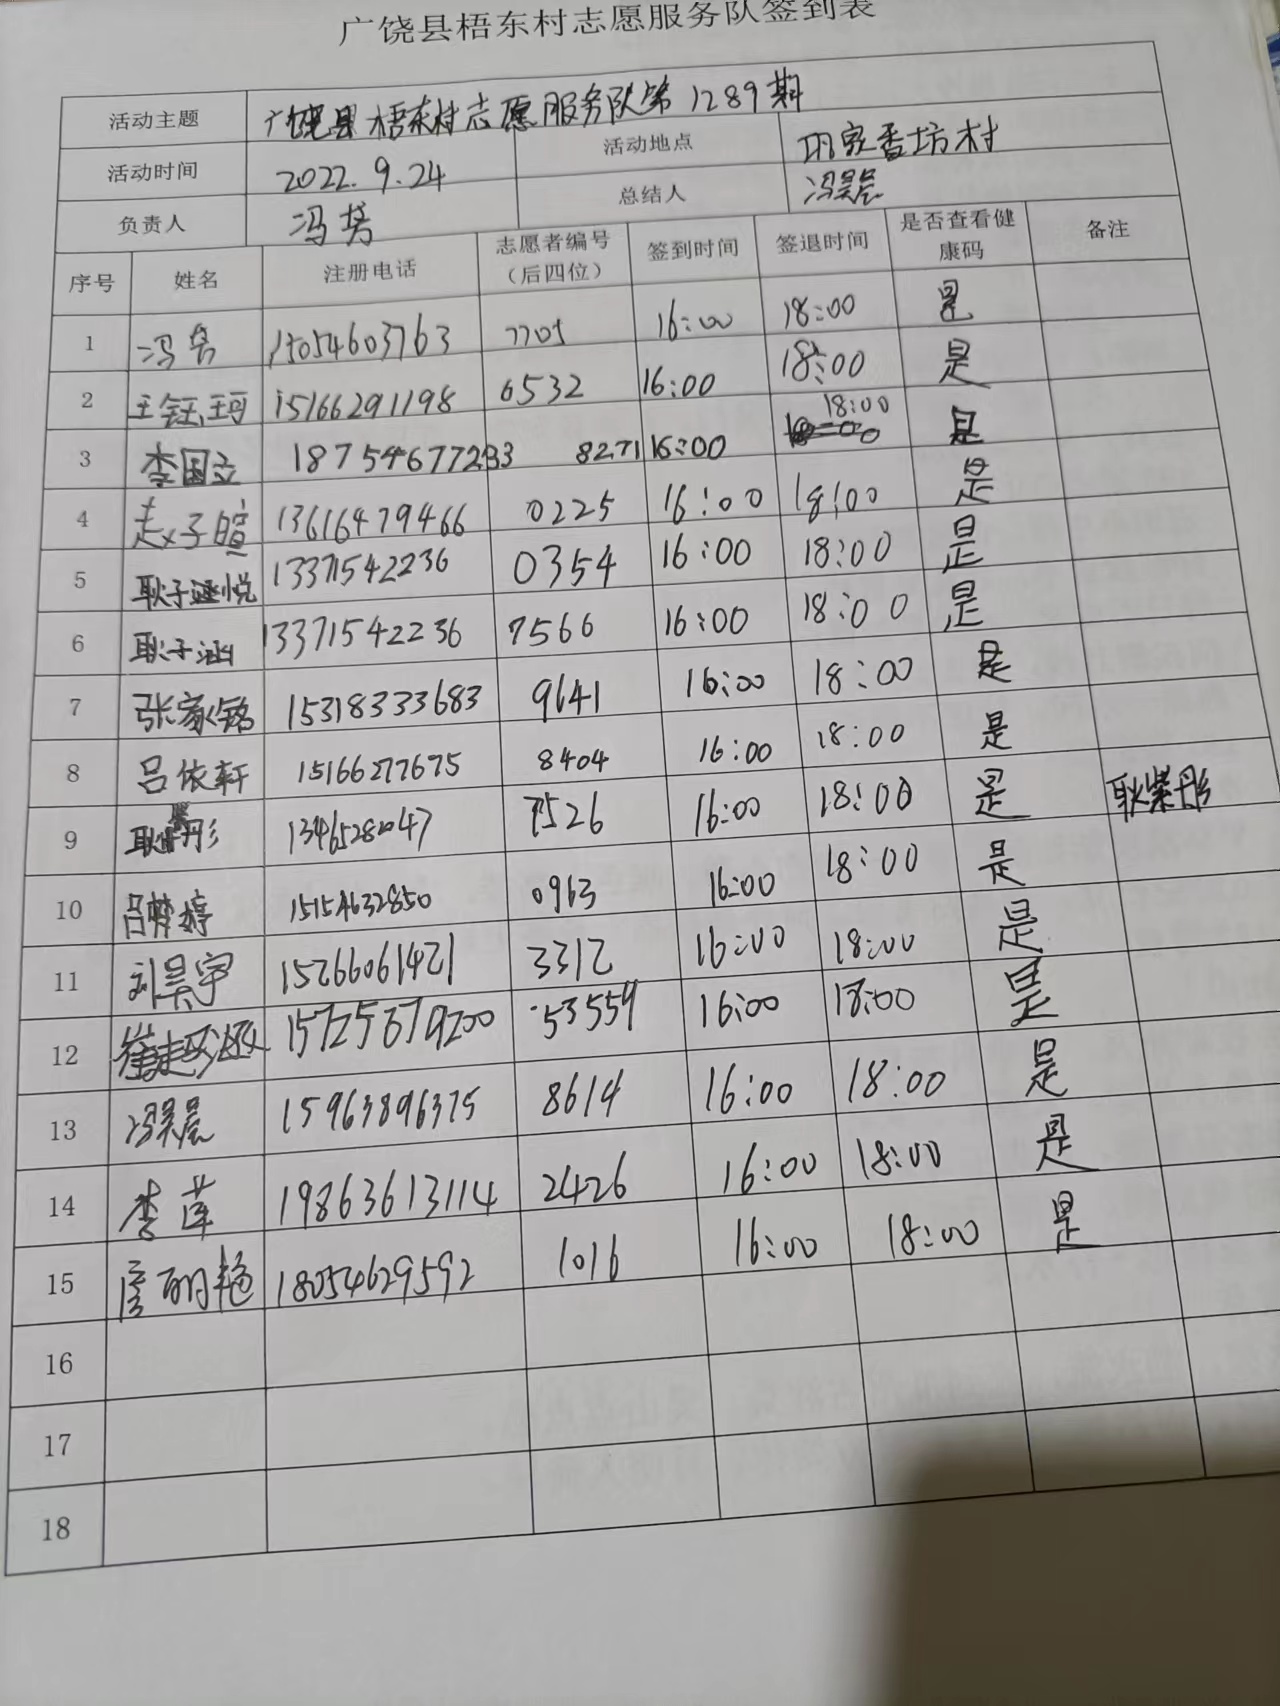 广饶县梧东村志愿服务队签到表
活动主题 广饶县梧东村志愿服务队第1289期
活动时间 2022.9.24 活动地点 巩家香坊村
负责人 冯芳 总结人 冯昊晨
序号 姓名 注册电话 志愿者编号（后四位） 签到时间 签退时间 是否查看健康码 备注
1 冯芳 15054603763 7705 16:00 18:00 是
2 王钰珂 15166291198 6532 16:00 18:00 是
3 李国立 18754677233 8271 16:00 18:00 是
4 赵子暄 13616479466 0225 16:00 18:00 是
5 耿子悦 13371542236 0354 16:00 18:00 是
6 耿子涵 13371542236 7566 16:00 18:00 是
7 张家铭 15318333683 9641 16:00 18:00 是
8 吕依轩 15166277675 8404 16:00 18:00 是
9 耿紫彤 13465282047 7526 16:00 18:00 是 耿紫彤
10 吕梦婷 15154632850 0963 16:00 18:00 是
11 刘昊宇 15266061421 3312 16:00 18:00 是
12 15725679200 53559 16:00 18:00 是
13 冯昊晨 15963896375 8614 16:00 18:00 是
14 李莲 19863613114 2426 16:00 18:00 是
15 18054629592 1016 16:00 18:00 是
16
17
18